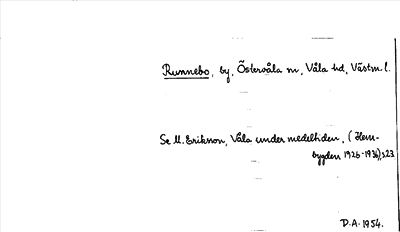 Runnebo, by, Östervåla sn, Våla hd, Västm. l.
Se M. Erikson, Våla under medeltiden, (Hem-
bygden 1926-1936), s. 23.
D.A. 1954.